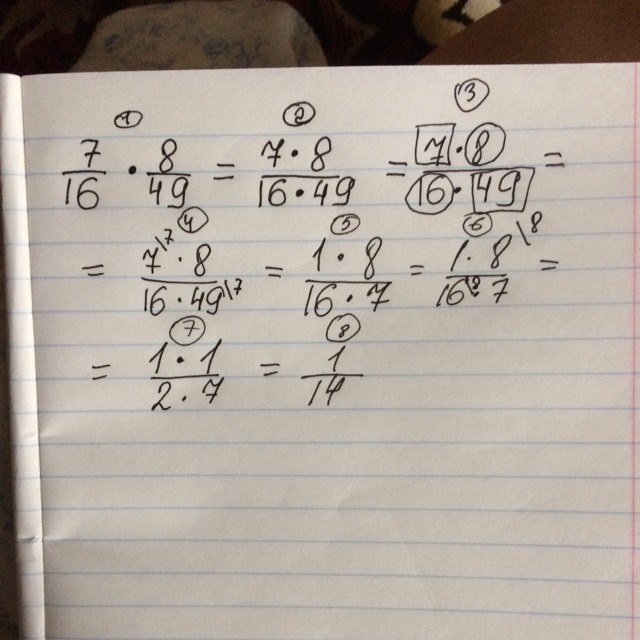 ① ② ③
7/16 · 8/49 = 7·8/16·49 = 7·8/16·49 =
④ ⑤ ⑥
= 7\7 · 8/16 · 49\7 = 1 · 8/16 · 7 = 1 · 8\8/16\8 · 7 =
⑦ ⑧
= 1 · 1/2 · 7 = 1/14